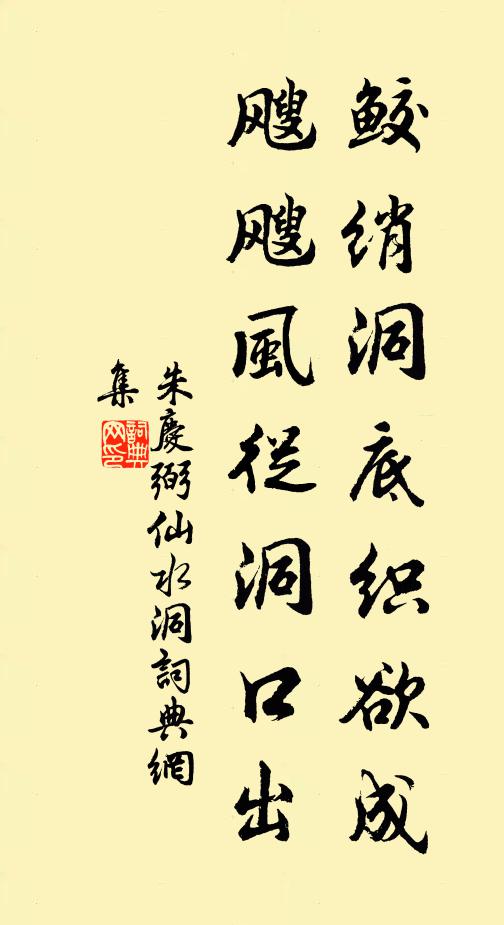 鲛绡洞底织欲成
飕飕風從洞口出
朱慶弼仙水洞詞典網
集
詞典
网印